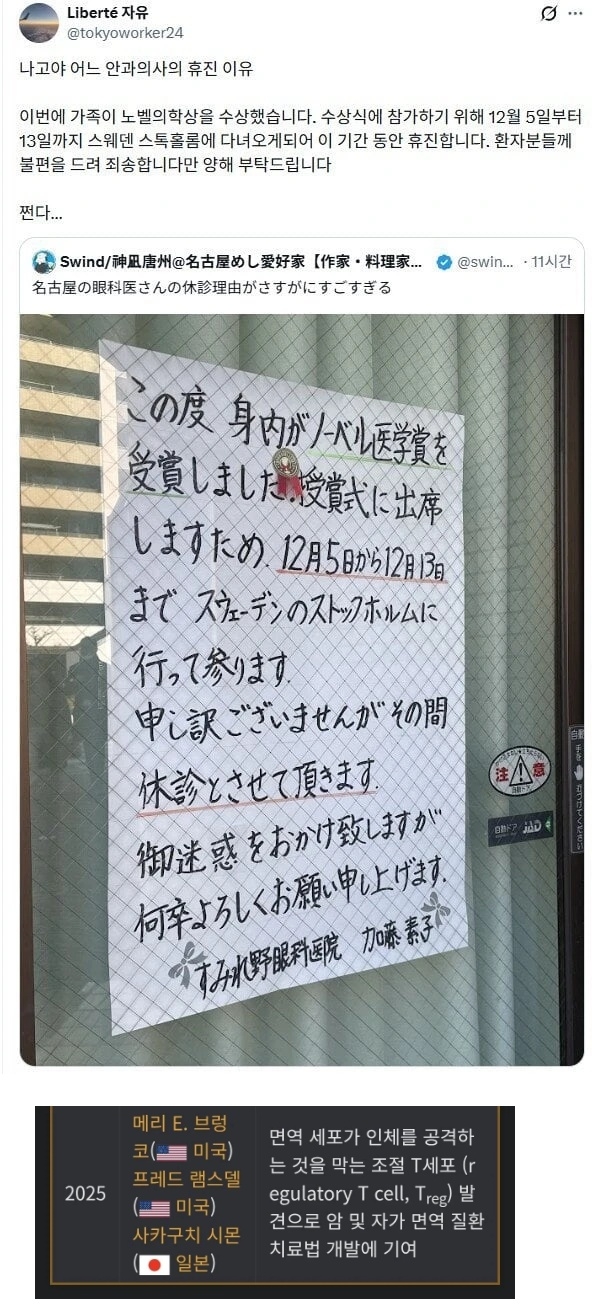 Liberté 자유
@tokyoworker24
나고야 어느 안과의사의 휴진 이유
이번에 가족이 노벨의학상을 수상했습니다. 수상식에 참가하기 위해 12월 5일부터
13일까지 스웨덴 스톡홀룸에 다녀오게되어 이 기간 동안 휴진합니다. 환자분들께
불편을 드려 죄송합니다만 양해 부탁드립니다
쩐다...
Swind/神凪唐州@名古屋めし愛好家【作家・料理家... @swin... · 11시간
名古屋の眼科医さんの休診理由がさすがにすごすぎる
この度 身内がノーベル医学賞を
受賞しました.授賞式に出席
しますため、12月5日から12月13日
まで スウェーデンのストックホルムに
行って参ります.
申し訳ございませんがその間
休診とさせて頂きます.
御迷惑をおかけ致しますが
何卒よろしくお願い申し上げます.
すみれ野眼科医院 加藤素子
注意
自動ドア
自動ドア JAD
2025
메리 E. 브렁
코(미국)
프레드 램스델
(미국)
사카구치 시몬
(일본)
면역 세포가 인체를 공격하
는 것을 막는 조절 T세포 (r
egulatory T cell, Treg) 발
견으로 암 및 자가 면역 질환
치료법 개발에 기여